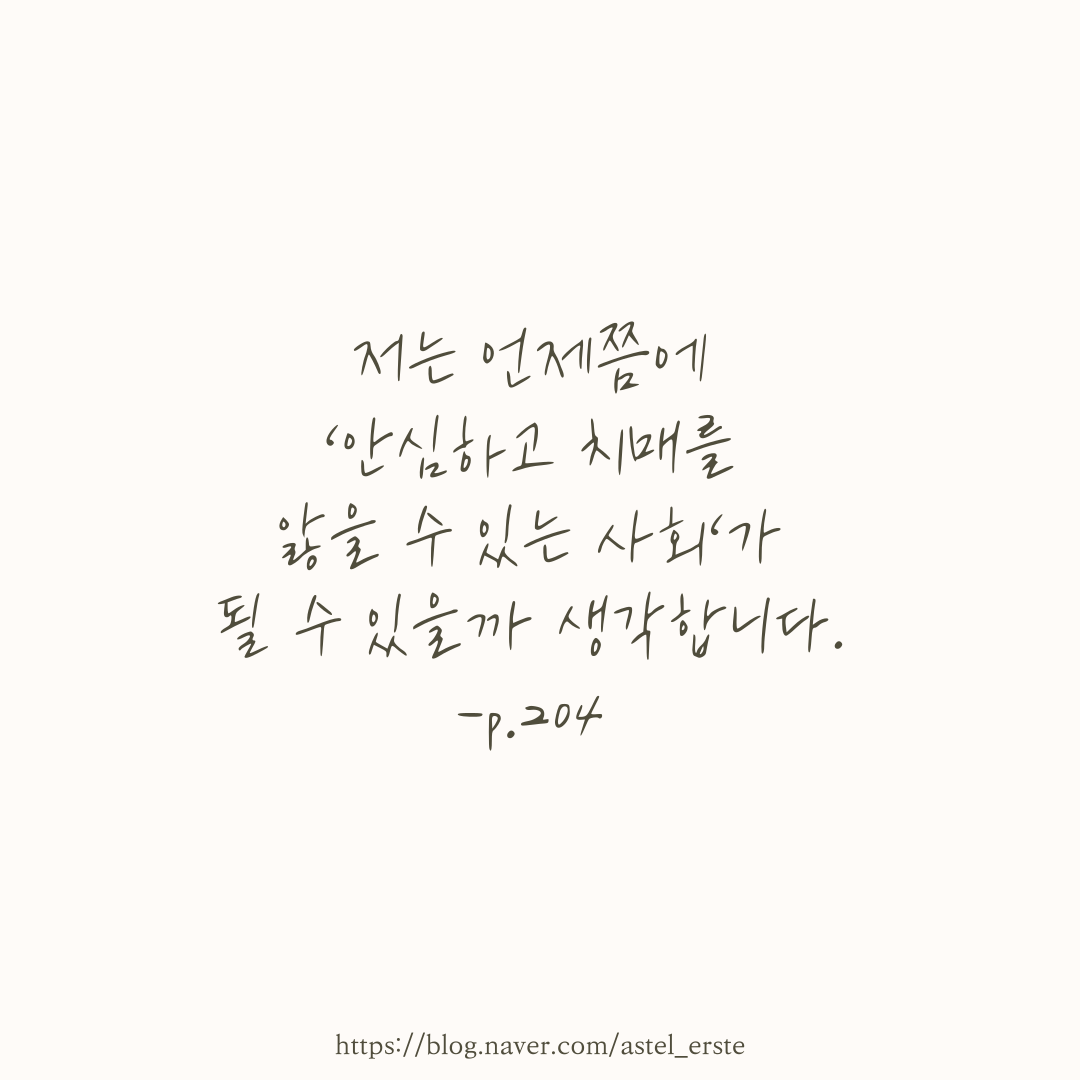 저는 언제쯤에
‘안심하고 치매를
앓을 수 있는 사회‘가
될 수 있을까 생각합니다.
-p.204
https://blog.naver.com/astel_erste